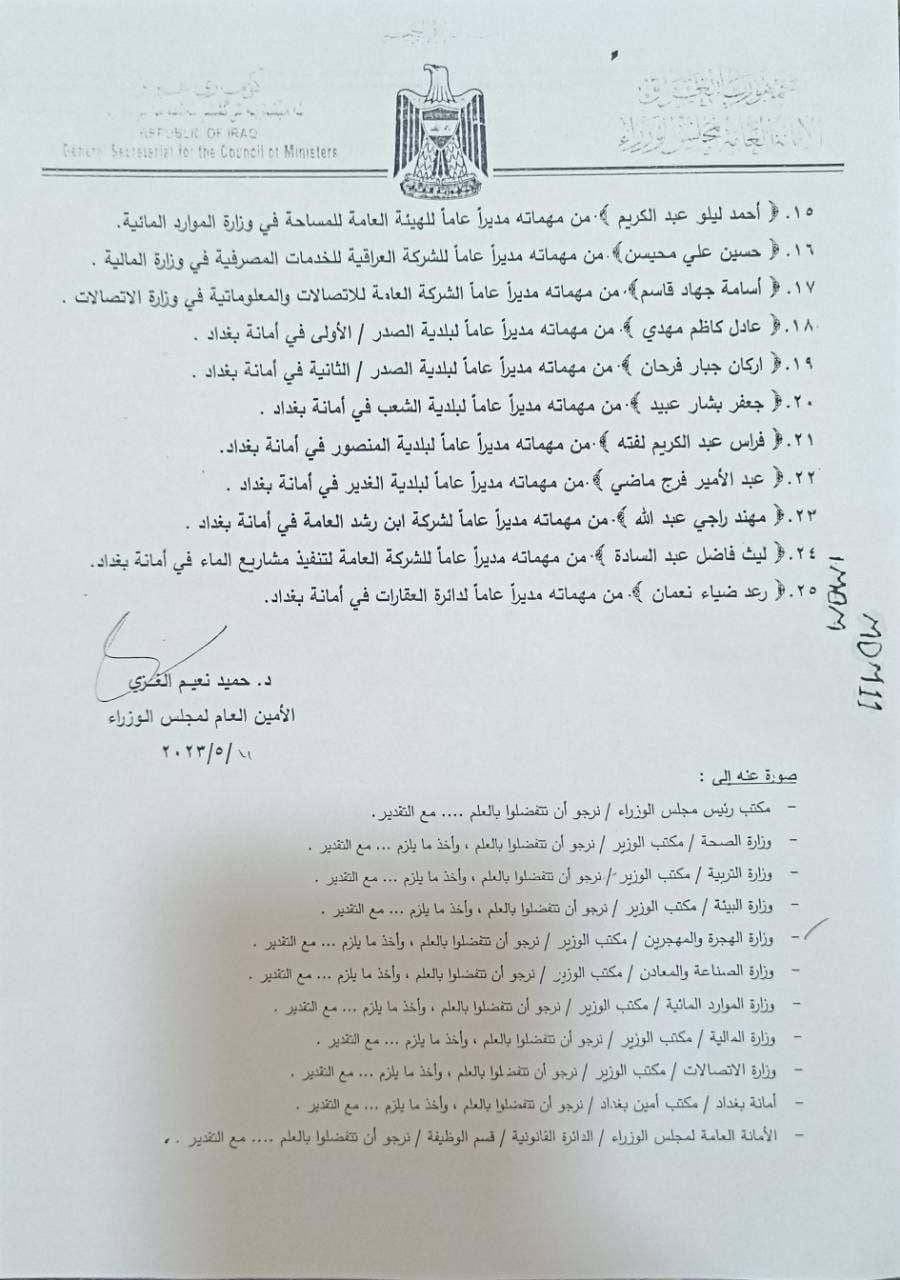 جمهورية العراق
الأمانة العامة لمجلس الوزراء
REPUBLIC OF IRAQ
General Secretariat for the Council of Ministers
١٥. ﴿ أحمد ليلو عبد الكريم ﴾ من مهماته مديراً عاماً للهيئة العامة للمساحة في وزارة الموارد المائية.
١٦. ﴿ حسين علي محيسن﴾ من مهماته مديراً عاماً للشركة العراقية للخدمات المصرفية في وزارة المالية .
١٧. ﴿ أسامة جهاد قاسم﴾ من مهماته مديراً عاماً الشركة العامة للاتصالات والمعلوماتية في وزارة الاتصالات .
١٨. ﴿ عادل كاظم مهدي ﴾ من مهماته مديراً عاماً لبلدية الصدر / الأولى في أمانة بغداد .
١٩. ﴿ اركان جبار فرحان ﴾ من مهماته مديراً عاماً لبلدية الصدر / الثانية في أمانة بغداد .
٢٠. ﴿ جعفر بشار عبيد ﴾ من مهماته مديراً عاماً لبلدية الشعب في أمانة بغداد .
٢١. ﴿ فراس عبد الكريم لفته ﴾ من مهماته مديراً عاماً لبلدية المنصور في أمانة بغداد.
٢٢. ﴿ عبد الأمير فرج ماضي ﴾ من مهماته مديراً عاماً لبلدية الغدير في أمانة بغداد .
٢٣. ﴿ مهند راجي عبد الله ﴾ من مهماته مديراً عاماً لشركة ابن رشد العامة في أمانة بغداد .
٢٤. ﴿ ليث فاضل عبد السادة ﴾ من مهماته مديراً عاماً للشركة العامة لتنفيذ مشاريع الماء في أمانة بغداد.
٢٥. ﴿ رعد ضياء نعمان ﴾ من مهماته مديراً عاماً لدائرة العقارات في أمانة بغداد.
د. حميد نعيم الغزي
الأمين العام لمجلس الوزراء
١١/٥/٢٠٢٣
صورة عنه إلى :
- مكتب رئيس مجلس الوزراء / نرجو أن تتفضلوا بالعلم .... مع التقدير.
- وزارة الصحة / مكتب الوزير / نرجو أن تتفضلوا بالعلم ، وأخذ ما يلزم ... مع التقدير .
- وزارة التربية / مكتب الوزير / نرجو أن تتفضلوا بالعلم ، وأخذ ما يلزم ... مع التقدير .
- وزارة البيئة / مكتب الوزير / نرجو أن تتفضلوا بالعلم ، وأخذ ما يلزم ... مع التقدير .
- وزارة الهجرة والمهجرين / مكتب الوزير / نرجو أن تتفضلوا بالعلم ، وأخذ ما يلزم ... مع التقدير .
- وزارة الصناعة والمعادن / مكتب الوزير / نرجو أن تتفضلوا بالعلم ، وأخذ ما يلزم ... مع التقدير .
- وزارة الموارد المائية / مكتب الوزير / نرجو أن تتفضلوا بالعلم ، وأخذ ما يلزم ... مع التقدير .
- وزارة المالية / مكتب الوزير / نرجو أن تتفضلوا بالعلم ، وأخذ ما يلزم ... مع التقدير .
- وزارة الاتصالات / مكتب الوزير / نرجو أن تتفضلوا بالعلم ، وأخذ ما يلزم ... مع التقدير .
- أمانة بغداد / مكتب أمين بغداد / نرجو أن تتفضلوا بالعلم ، وأخذ ما يلزم ... مع التقدير .
- الأمانة العامة لمجلس الوزراء / الدائرة القانونية / قسم الوظيفة / نرجو أن تتفضلوا بالعلم .... مع التقدير .